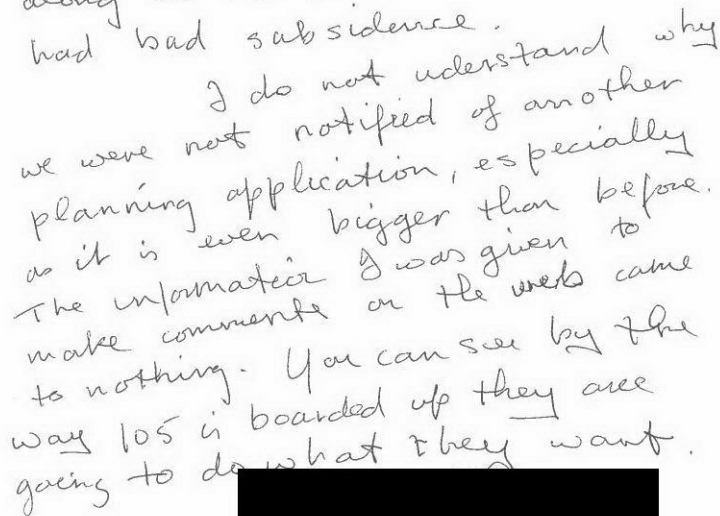 along
had bad subsidence.
I do not uderstand why
we were not notified of another
planning application, especially
as it is even bigger than before.
The information I was given to
make comments on the web came
to nothing. You can see by the
way 105 is boarded up they are
going to do what they want.